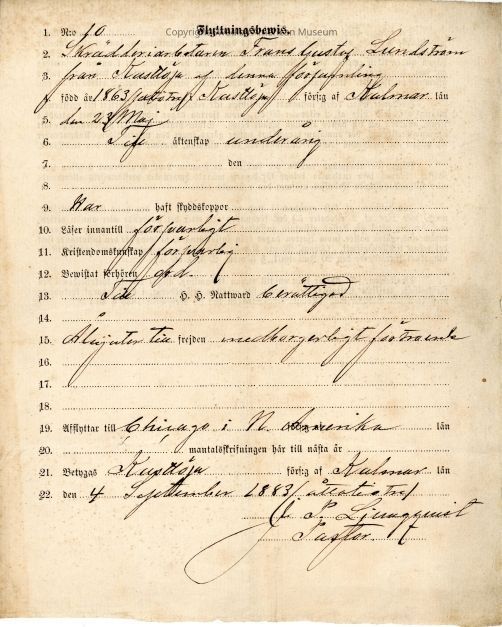 1. N:o 10 Flyttningsbewis.
2. Skrädderiarbetaren Frans Gustaf Lundström
3. från Kastlösa af denna församling
4. född år 1863 /åttatio tre/ Kastlösa förs:g af Kalmar län
5. den 23 Maj
6. Till äktenskap underårig
7. den
8.
9. Har haft skyddskoppor
10. Läser innantill försvarligt
11. Kristendomskunskap försvarlig
12. Bewistat förhören god.
13. Till H. H. Nattward berättigad
14.
15. Åtnjuter till frejden medborgerligt förtroende
16.
17.
18.
19. Afflyttar till Chicago i N. Amerika län
20. mantalsskrifningen här till nästa år
21. Betygas Kastlösa förs:g af Kalmar län
22. den 4 September 1883 /åttatio tre/
J. P. Ljungqvist
Pastor.